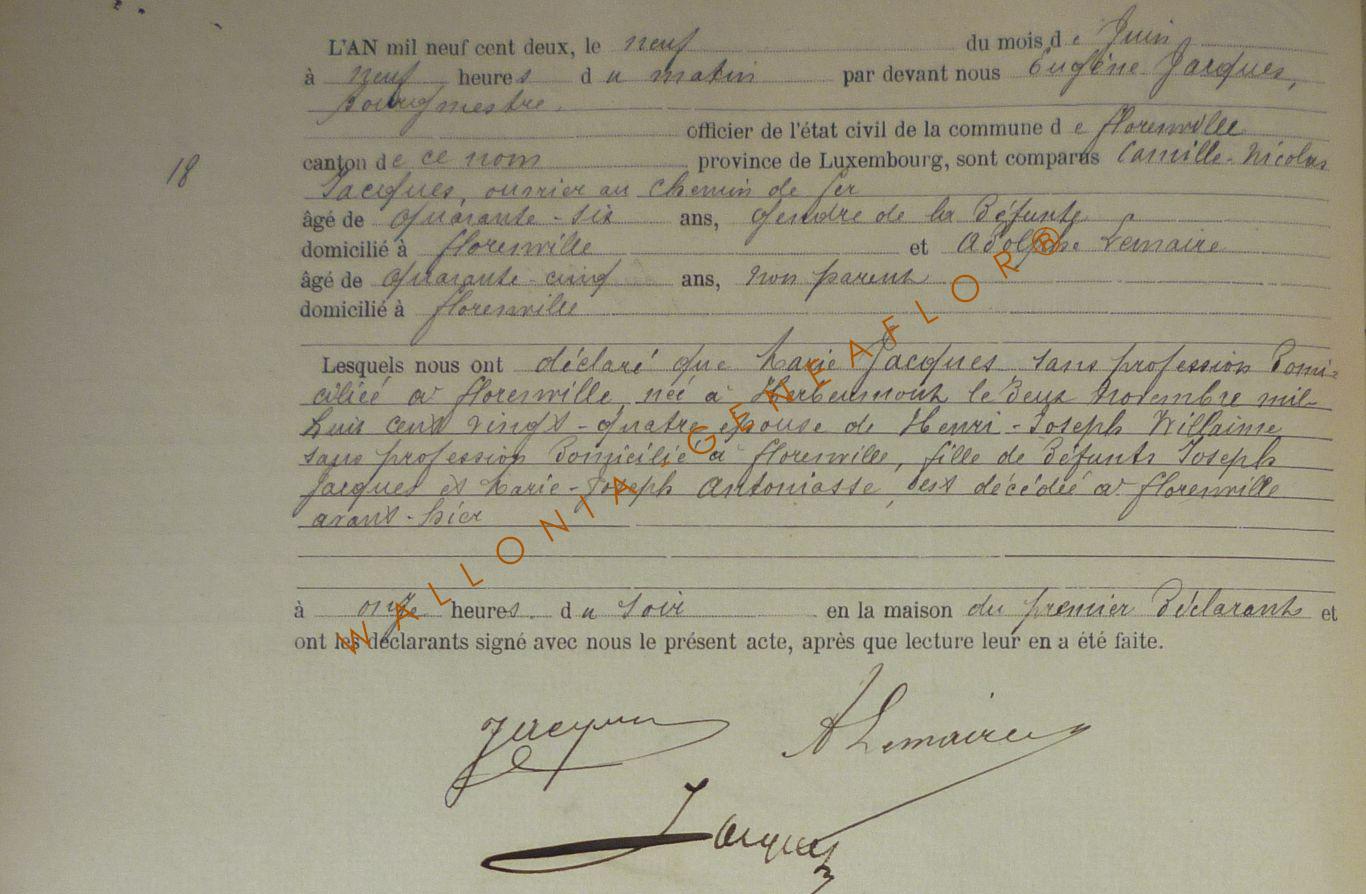 L'AN mil neuf cent deux, le neuf du mois de Juin
à neuf heures du matin par devant nous Eugène Jacques,
Bourgmestre
officier de l'état civil de la commune de florenville
18
canton de ce nom province de Luxembourg, sont comparus Camille-Nicolas
Jacques, ouvrier au chemin de fer
âgé de quarante-six ans, gendre de la Défunte
domicilié à florenville et Adolphe Lemaire
âgé de quarante-cinq ans, non parent
domicilié à florenville
Lesquels nous ont déclaré que Marie Jacques sans profession Domi-
ciliée à florenville, née à Herbeumont le Deux Novembre mil
huit cent vingt-quatre épouse de Henri-Joseph Willaime
sans profession Domicilié à florenville, fille de Défunts Joseph
Jacques et Marie-Joseph Antoniasse, est décédée à florenville
avant-hier
à onze heures du soir en la maison du premier Déclarant et
ont les déclarants signé avec nous le présent acte, après que lecture leur en a été faite.
Jacques
A Lemaire
Jacques
WALLONIA-GENEAFLOR®